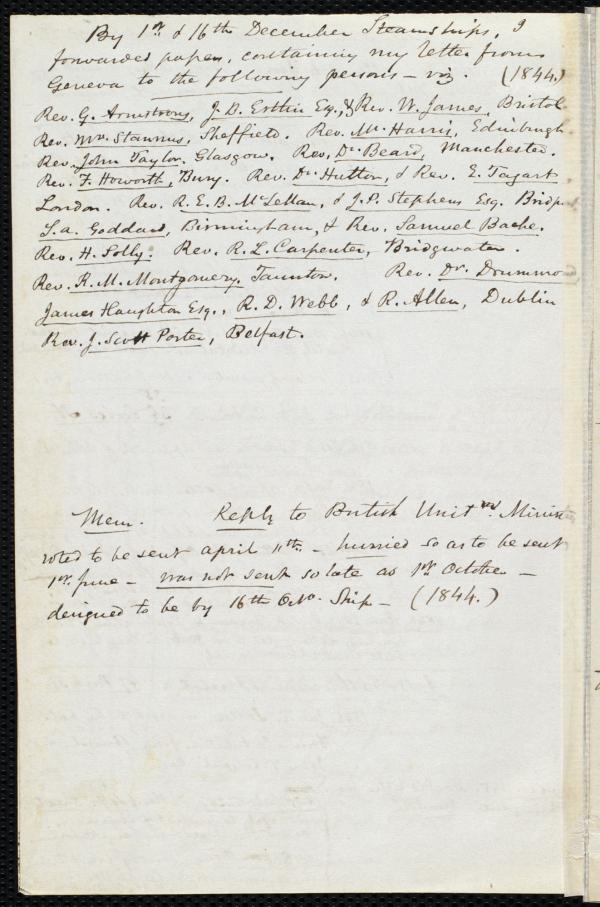 By 1st & 16th December Steamships, I
forwarded papers, containing my letter from
Geneva to the following persons – viz. (1844.)
Rev. G. Armstrong, J. B. Estlin Esq., & Rev. W. James, Bristol
Rev. Mr. Stannus, Sheffield. Rev. Mr. Harris, Edinburgh.
Rev. John Taylor, Glasgow. Rev. Dr. Beard, Manchester.
Rev. F. Howorth, Bury. Rev. Dr. Hutton, & Rev. E. Tagart
London. Rev. R. E. B. McLellan, & J. P. Stephens Esq. Bridp
S. A. Goddard, Birmingham, & Rev. Samuel Bache.
Rev. H. Solly. Rev. R. L. Carpenter, Bridgwater.
Rev. R. M. Montgomery, Taunton. Rev. Dr. Drummo
James Haughton Esq., R. D. Webb, & R. Allen, Dublin
Rev. J. Scott Porter, Belfast.
Mem. Reply to British Unitn. Minist
voted to be sent april 11th. – hurried so as to be sent
1st. June – was not sent so late as 1st. October –
designed to be by 16th Octr. Ship – (1844.)